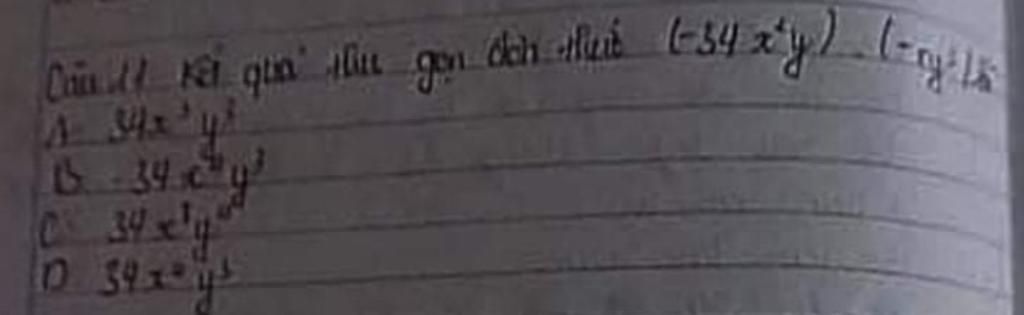 Câu 11 Kết quả thu gọn đơn thức (-34x²y). (-xy²) là
A 34x³y³
B -34x⁴y³
C 34x³y⁴
D 34x²y³